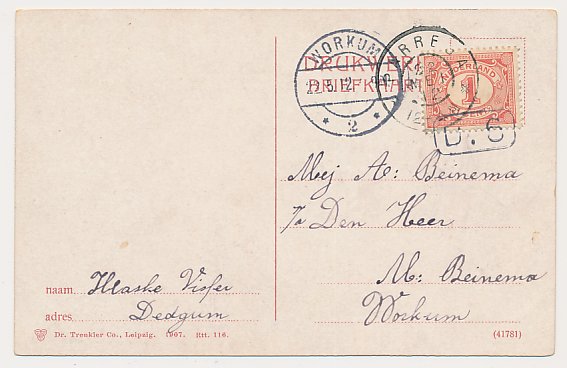 WORKUM
22.5.12.
* 2 *
PARREGA
DRUKWERK
BRIEFKAART
NEDERLAND
1
CENT
D.6
Mej A: Beinema
p/a Den Heer
M: Beinema
Workum
naam Haaske Visser
adres Dedgum
Dr. Trenkler Co., Leipzig. 1907. Ett. 116.
(41781)